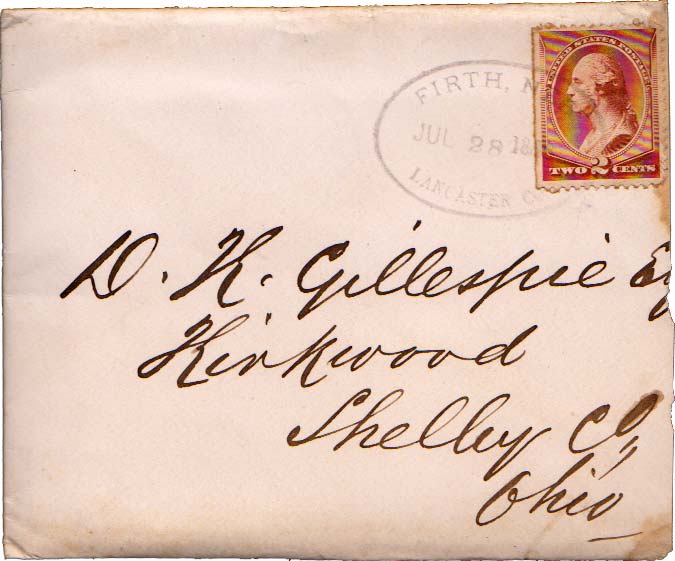 FIRTH, N
JUL 28 18
LANCASTER CO
UNITED STATES POSTAGE
TWO 2 CENTS
D. K. Gillespie Esq
Kirkwood
Shelby Co,
Ohio